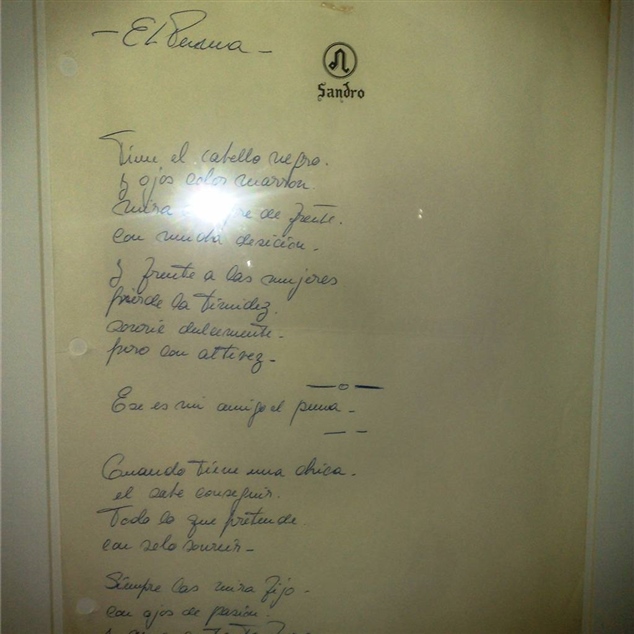 — EL Puma —
Sandro
Tiene el cabello negro.
y ojos color marron.
mira de frente.
con mucha desición.
y frente a las mujeres
pierde la timidez.
sonrie dulcemente.
pero con altivez –
Ese es mi amigo el puma –
Cuando tiene una chica –
el sabe conseguir.
Todo lo que pretende.
con solo sonreir –
Siempre las mira fijo –
con ojos de pasión.